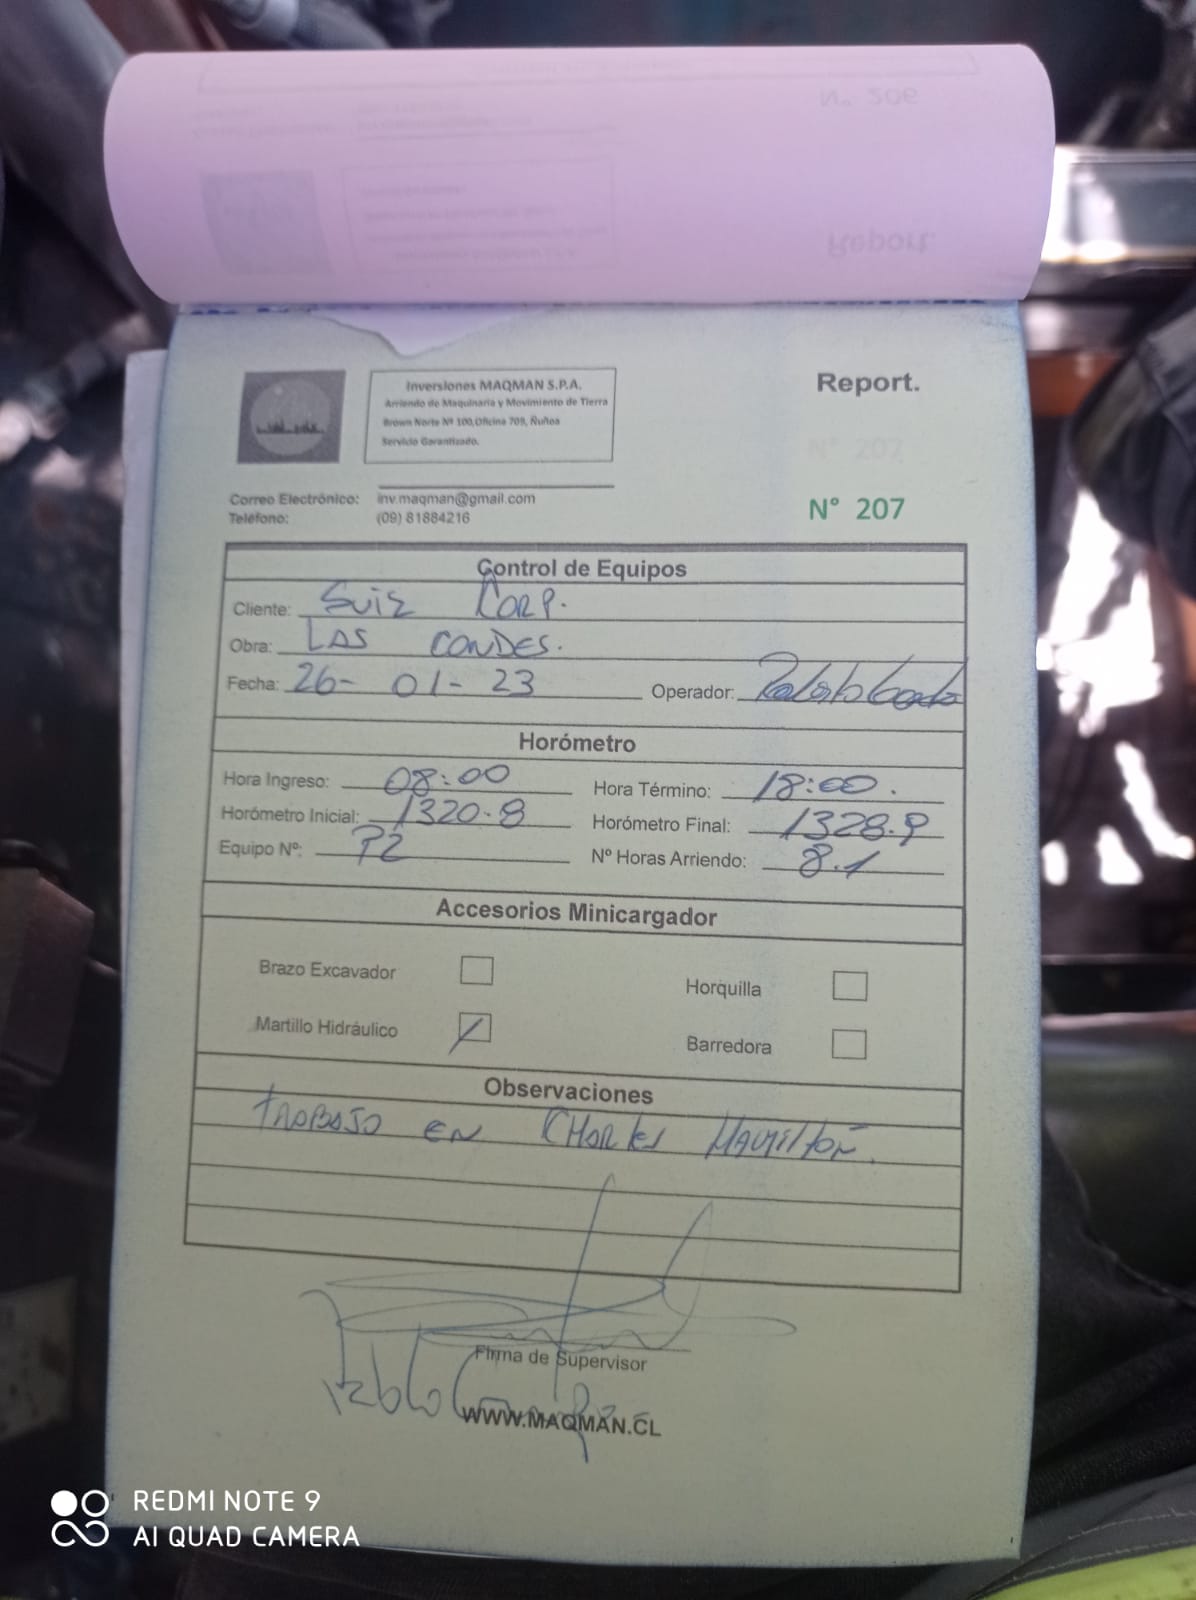 Report.
Inversiones MAQMAN S.P.A.
Arriendo de Maquinaria y Movimiento de Tierra
Brown Norte Nº 100, Oficina 709, Ñuñoa
Servicio Garantizado.
Correo Electrónico: inv.maqman@gmail.com
Teléfono: (09) 81884216
N° 207
N° 207
Control de Equipos
Cliente: Suiz Corp.
Obra: LAS CONDES.
Fecha: 26-01-23 Operador:
Horómetro
Hora Ingreso: 08:00 Hora Término: 18:00.
Horómetro Inicial: 1320.8 Horómetro Final: 1328.9
Equipo Nº: P2 Nº Horas Arriendo: 8.1
Accesorios Minicargador
Brazo Excavador Horquilla
Martillo Hidráulico Barredora
Observaciones
TRABAJO EN CHARLES HAMILTON.
Firma de Supervisor
Pablo
WWW.MAQMAN.CL
REDMI NOTE 9
AI QUAD CAMERA